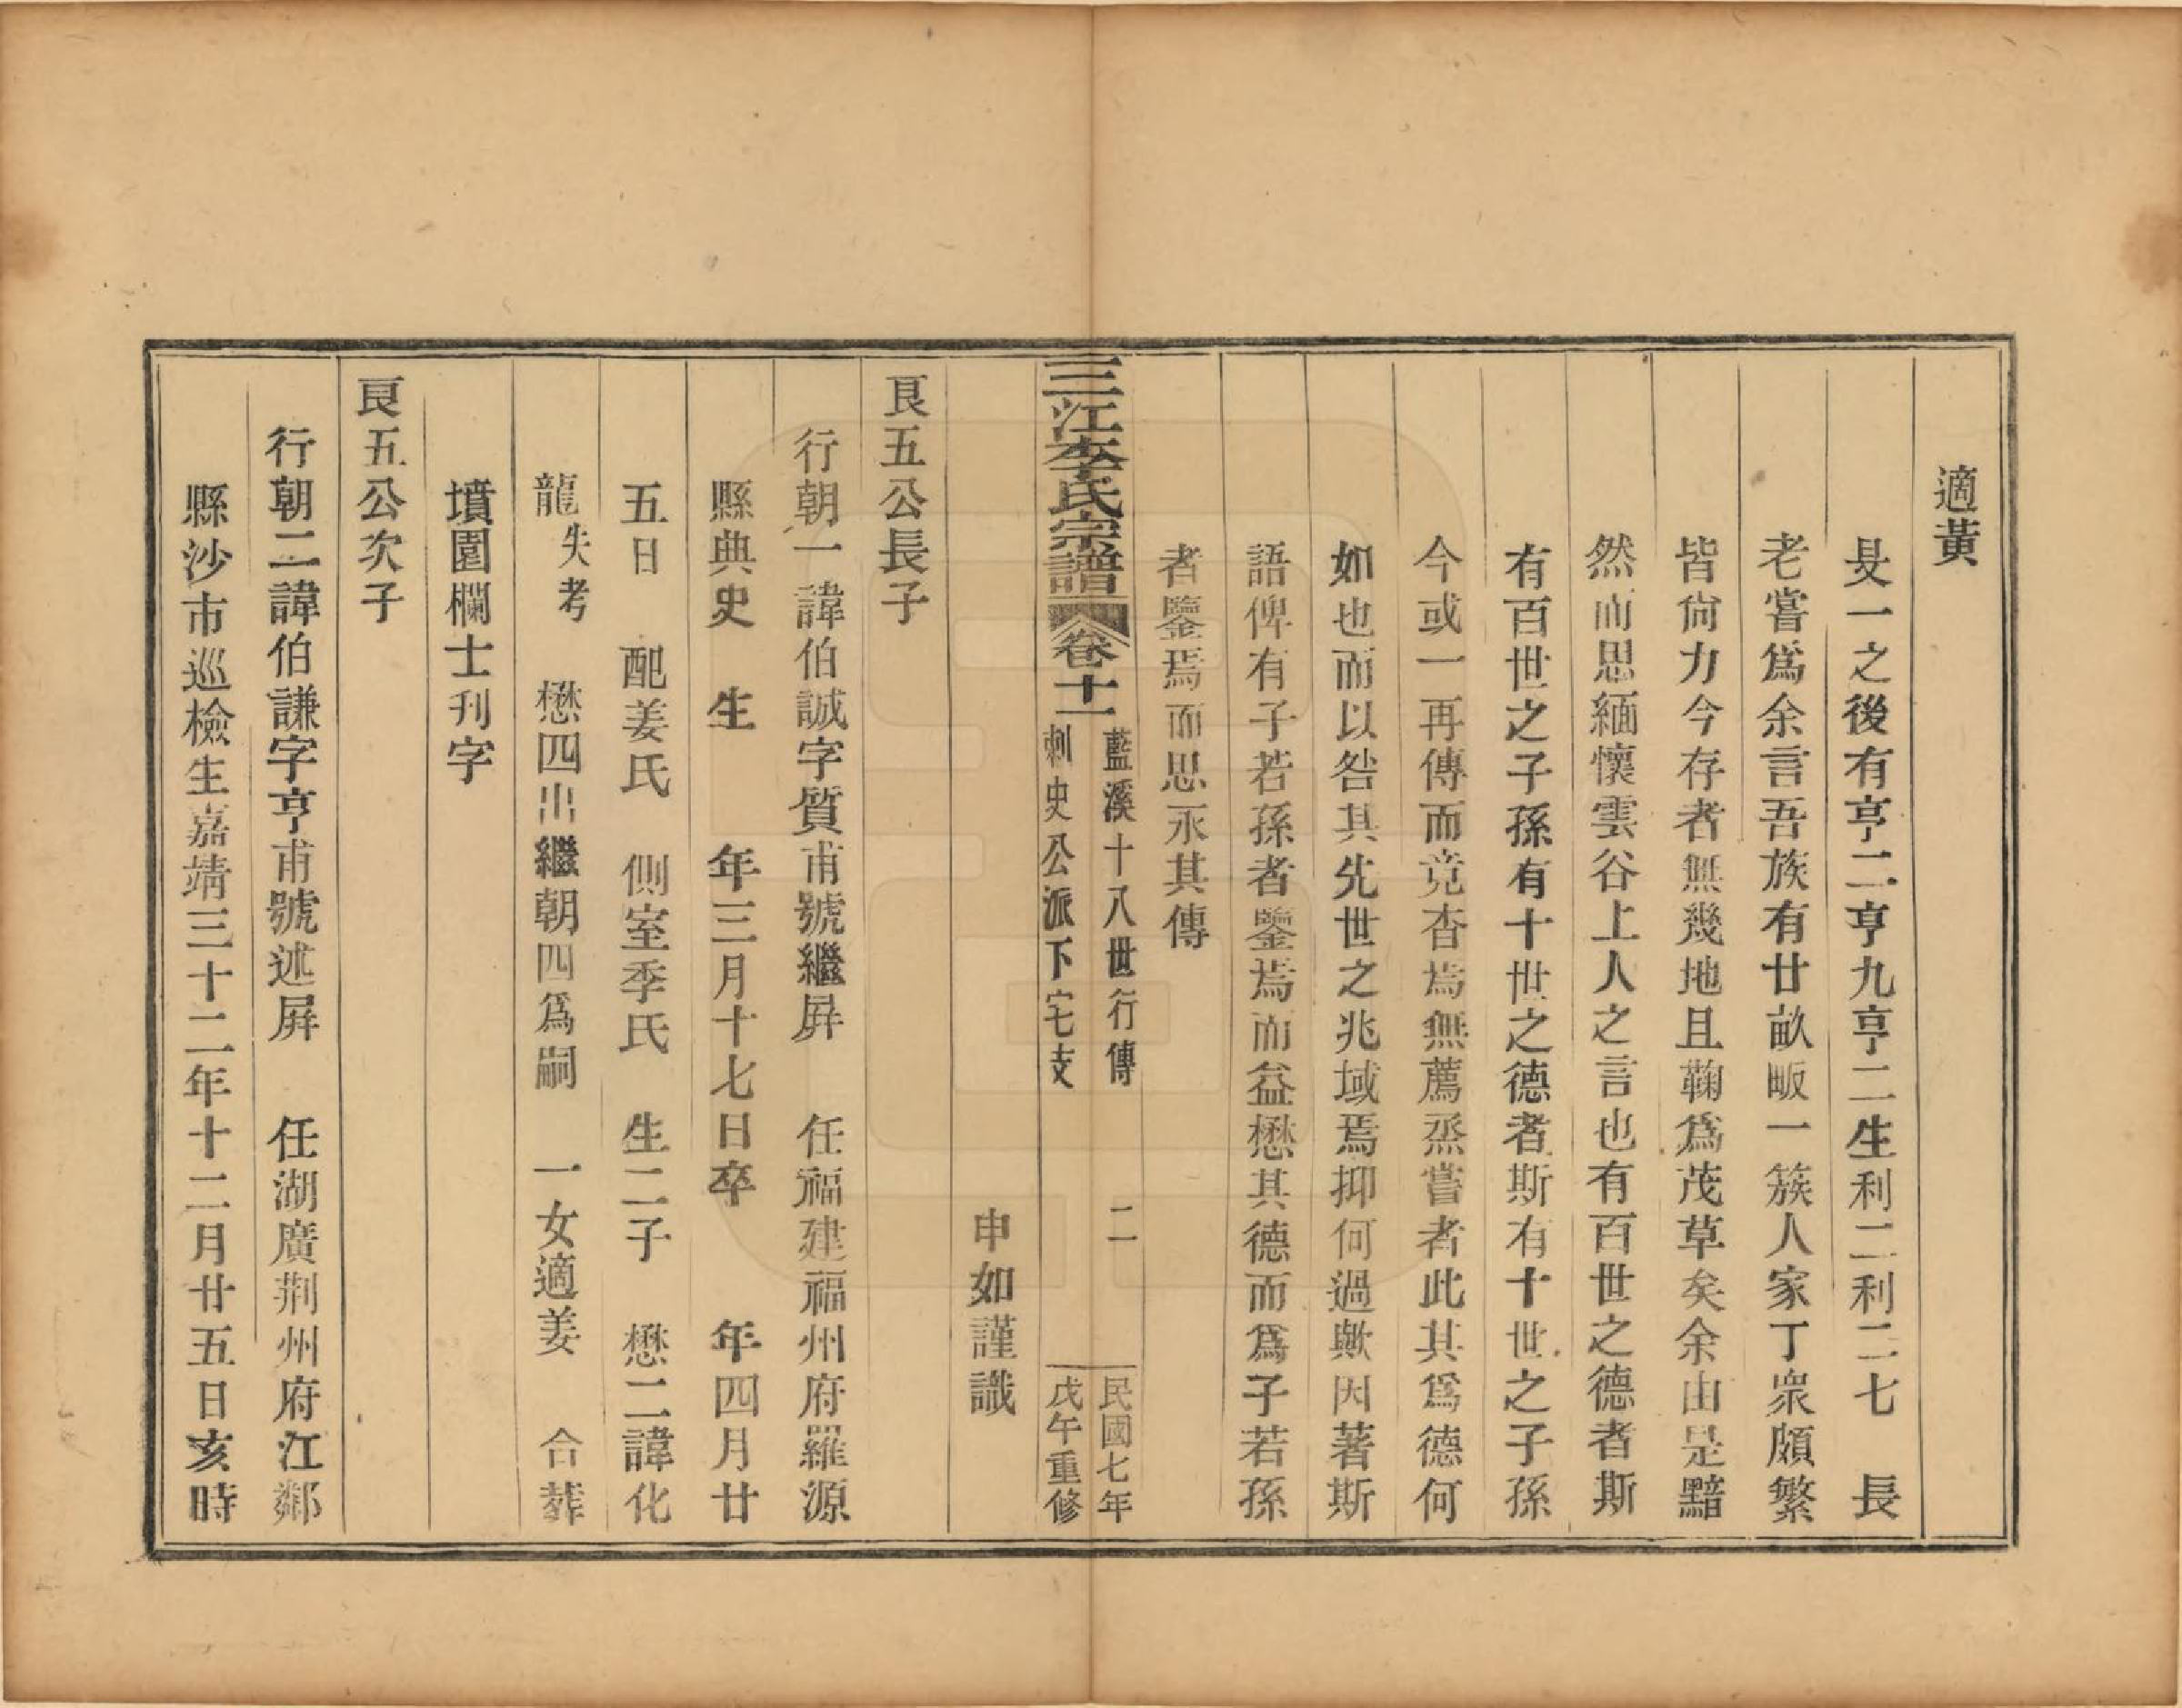 適黃
旻一之後有亨二亨九亨二生利二利二七　長
老嘗爲余言吾族有廿畝畈一簇人家丁衆頗繁
皆尙力今存者無幾地且鞠爲茂草矣余由是黯
然而思緬懷雲谷上人之言也有百世之德者斯
有百世之子孫有十世之德者斯有十世之子孫
今或一再傳而竟杳焉無薦烝嘗者此其爲德何
如也而以咎其先世之兆域焉抑何過歟因著斯
語俾有子若孫者鑒焉而益懋其德而爲子若孫
者鑒焉而思永其傳
三江李氏宗譜　卷十一　藍溪十八世行傳　刺史公派下宅支　二　民國七年　戊午重修
申如謹識
良五公長子
行朝一諱伯誠字質甫號繼屏　任福建福州府羅源
縣典史　生　年三月十七日卒　年四月廿
五日　配姜氏　側室季氏　生二子　懋二諱化
龍失考　懋四出繼朝四爲嗣　一女適姜　合葬
墳園欄士刋字
良五公次子
行朝二諱伯謙字亨甫號述屏　任湖廣荆州府江鄰
縣沙市巡檢生嘉靖三十二年十二月廿五日亥時